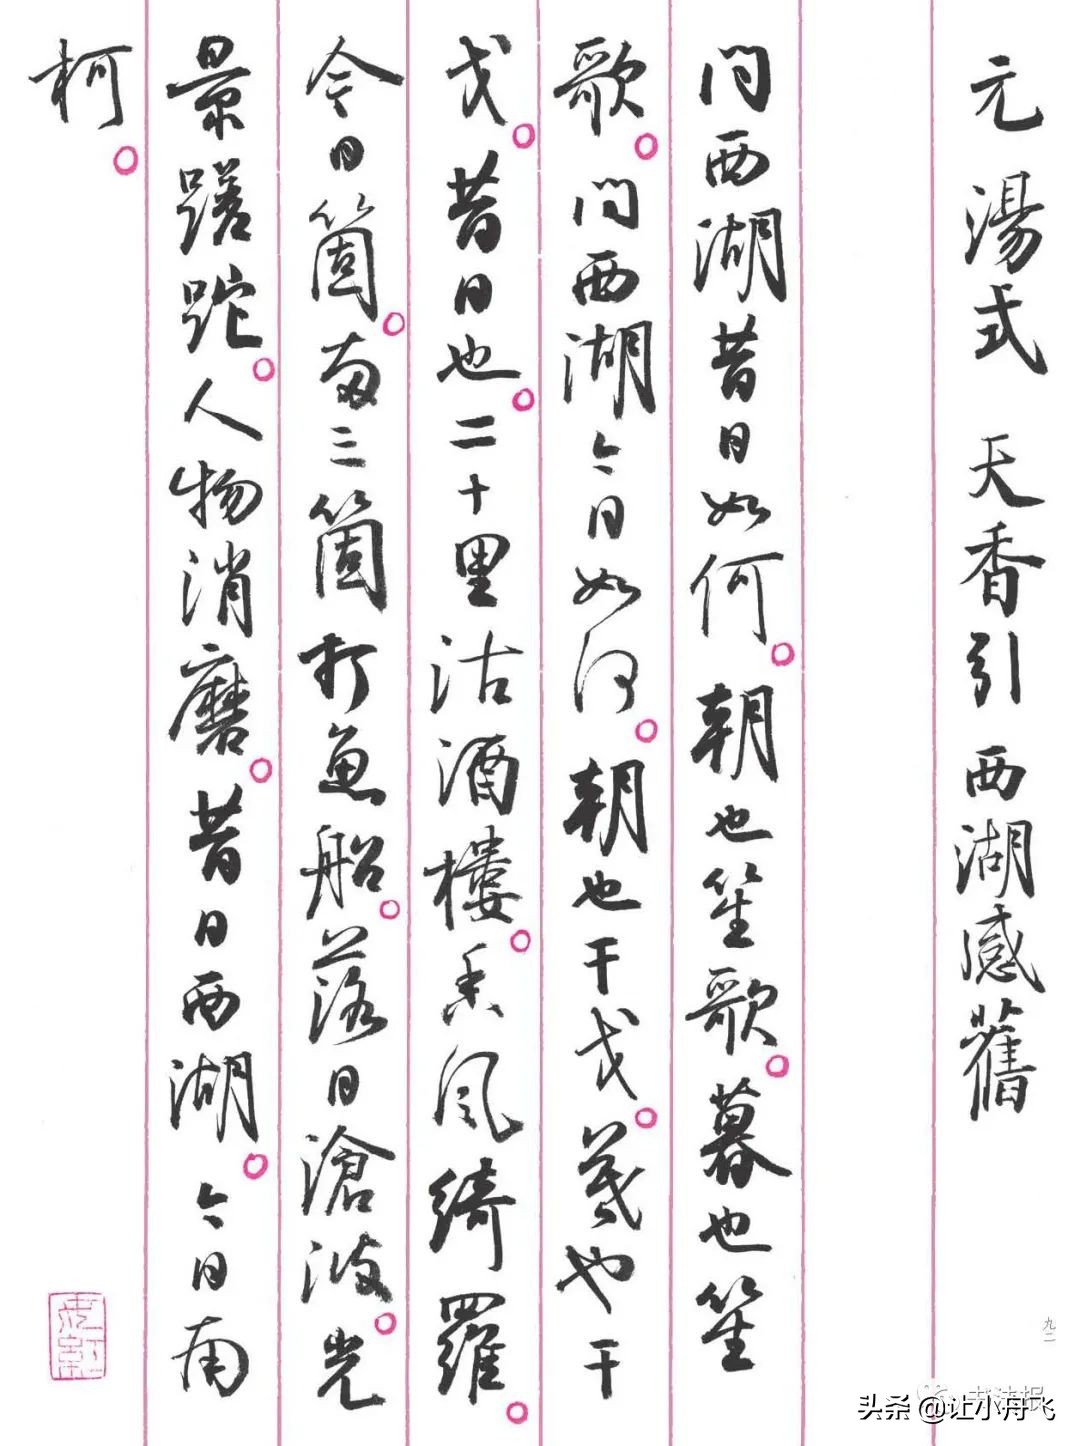 元 湯式 天香引 西湖感舊
問西湖昔日如何。朝也笙歌。暮也笙
歌。問西湖今日如何。朝也干戈。暮也干
戈。昔日也。二十里沽酒樓。香風綺羅。
今日箇。兩三箇打魚船。落日滄波。光
景蹉跎。人物消磨。昔日西湖。今日南
柯。
九二
书法报
头条 @让小舟飞